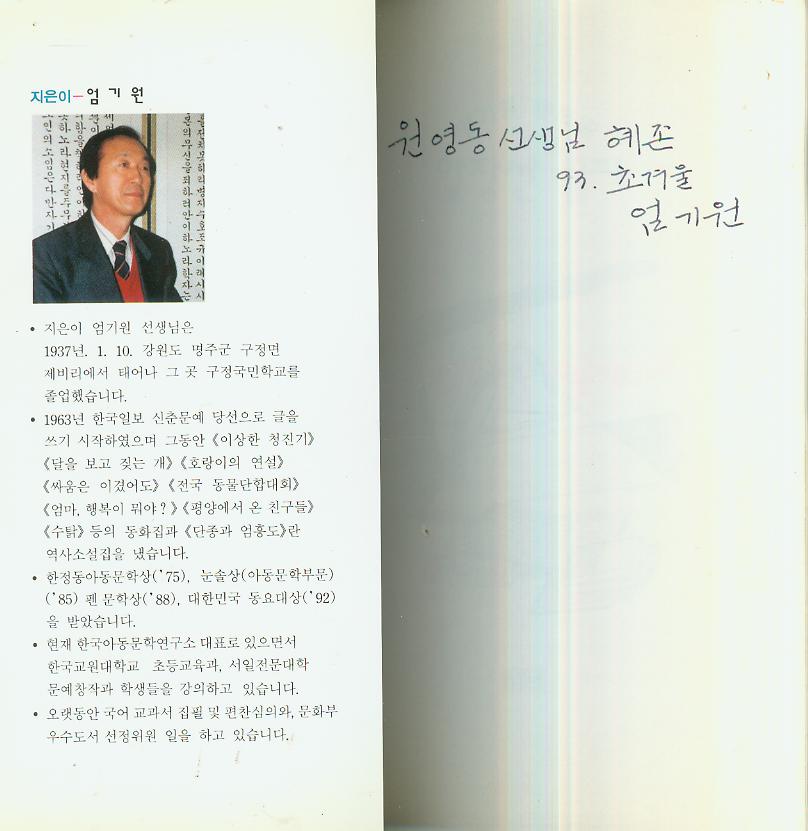 지은이-엄기원
지은이 엄기원 선생님은
1937년. 1. 10. 강원도 명주군 구정면
제비리에서 태어나 그 곳 구정국민학교를
졸업했습니다.
1963년 한국일보 신춘문예 당선으로 글을
쓰기 시작하였으며 그동안 《이상한 청진기》
《달을 보고 짖는 개》 《호랑이의 연설》
《싸움은 이겼어도》 《전국 동물단합대회》
《엄마, 행복이 뭐야?》 《평양에서 온 친구들》
《수탉》 등의 동화집과 《단종과 엄흥도》란
역사소설집을 냈습니다.
한정동아동문학상('75), 눈솔상(아동문학부문)
('85) 펜 문학상('88), 대한민국 동요대상('92)
을 받았습니다.
현재 한국아동문학연구소 대표로 있으면서
한국교원대학교 초등교육과, 서일전문대학
문예창작과 학생들을 강의하고 있습니다.
오랫동안 국어 교과서 집필 및 편찬심의와, 문화부
우수도서 선정위원 일을 하고 있습니다.
원영동 선생님 혜존
93. 초겨울
엄기원